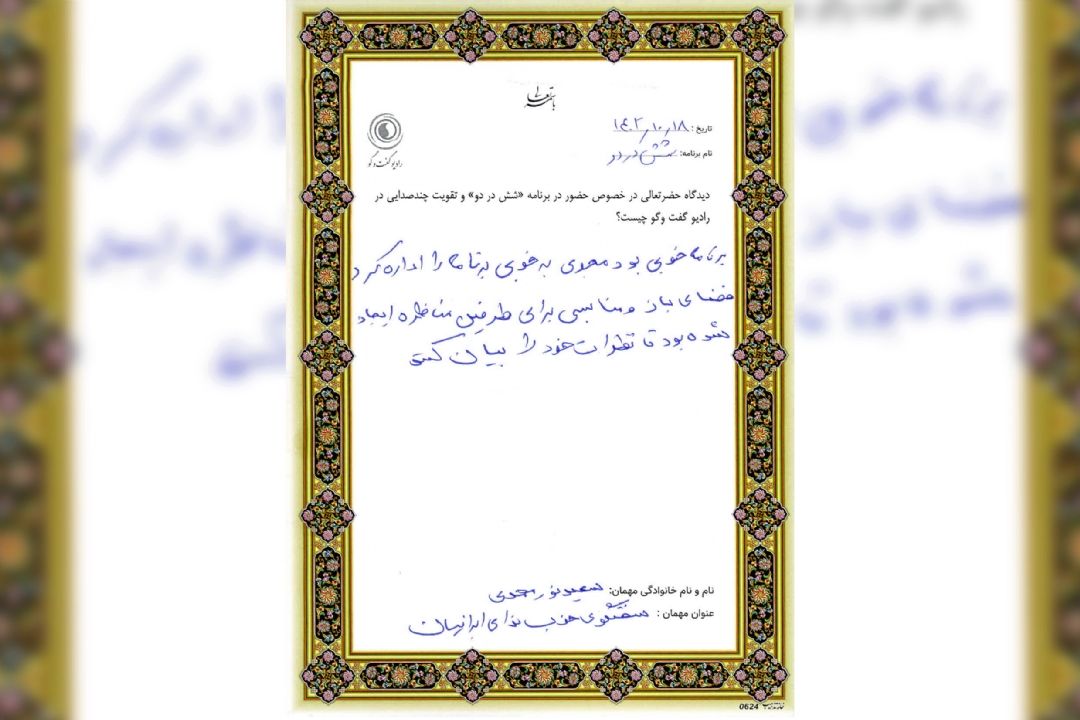 باسمه تعالی
رادیو گفت و گو
تاریخ: ۱۴۰۲/۱۰/۱۸
نام برنامه: شش در دو
دیدگاه حضرتعالی در خصوص حضور در برنامه «شش در دو» و تقویت چندصدایی در
رادیو گفت وگو چیست؟
برنامه خوبی بود مجری به خوبی برنامه را اداره کرد
فضای باز و مناسبی برای طرفین مناظره ایجاد
شده بود تا نظرات خود را بیان کنند
نام و نام خانوادگی مهمان: سعید نورمحمدی
عنوان مهمان: سخنگوی حزب ندای ایرانیان
0624